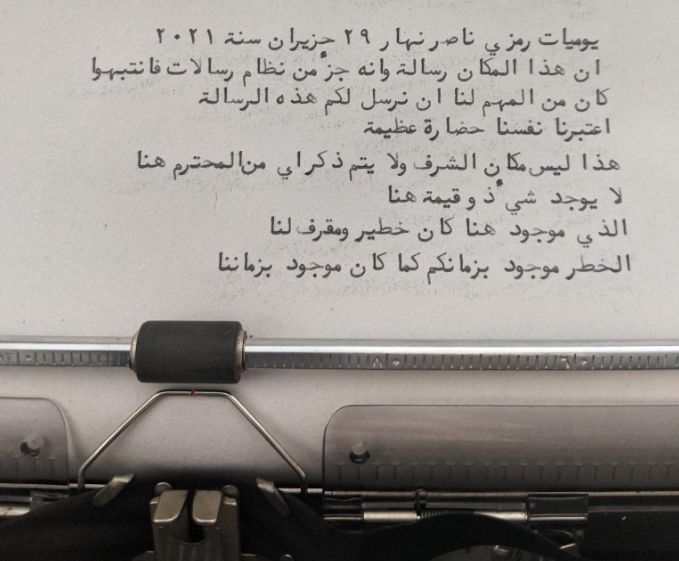 يوميات رمزي ناصر نهار ٢٩ حزيران سنة ٢٠٢١
ان هذا المكان رسالة وانه جزء من نظام رسالات فانتبهوا
كان من المهم لنا ان نرسل لكم هذه الرسالة
اعتبرنا نفسنا حضارة عظيمة
هذا ليس مكان الشرف ولا يتم ذكر اي من المحترم هنا
لا يوجد شيء ذو قيمة هنا
الذي موجود هنا كان خطير ومقرف لنا
الخطر موجود بزمانكم كما كان موجود بزماننا